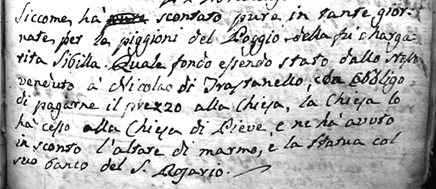 siccome, há scontato pure in tante gior-
nate per le piggioni del Poggio della fu Marga-
rita Sibilla. Quale fondo essendo stato dallo stesso
venduto à Nicolao di Trastanello, con obbligo
di pagarne il prezzo alla Chiesa, la Chiesa lo
há cesso alla Chiesa di Pieve, e ne há avuto
in sconto l'altare di marmo, e la statua col
suo banco del S. Rosario.